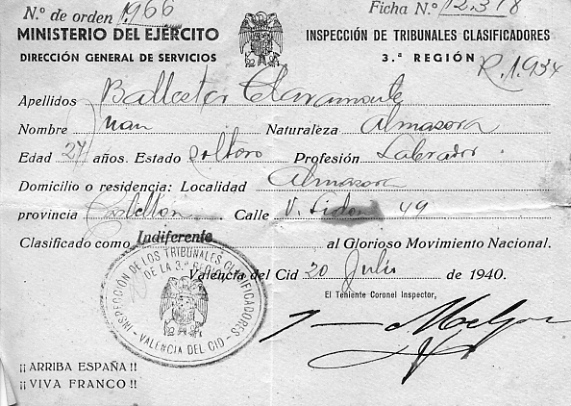 N.º de orden 1.966 Ficha N.º 12.378
MINISTERIO DEL EJÉRCITO
DIRECCIÓN GENERAL DE SERVICIOS
INSPECCIÓN DE TRIBUNALES CLASIFICADORES
3.ª REGIÓN
R. 1.934
Apellidos Ballester Claramonte
Nombre Juan Naturaleza Almasora
Edad 27 años. Estado soltero Profesión Labrador
Domicilio o residencia: Localidad Almasora
provincia Castellón Calle V. 49
Clasificado como Indiferente al Glorioso Movimiento Nacional.
Valencia del Cid 20 Julio de 1940.
El Teniente Coronel Inspector,
INSPECCIÓN DE LOS TRIBUNALES CLASIFICADORES
DE LA 3.ª REGIÓN
- VALENCIA DEL CID -
¡¡ARRIBA ESPAÑA!!
¡¡VIVA FRANCO!!